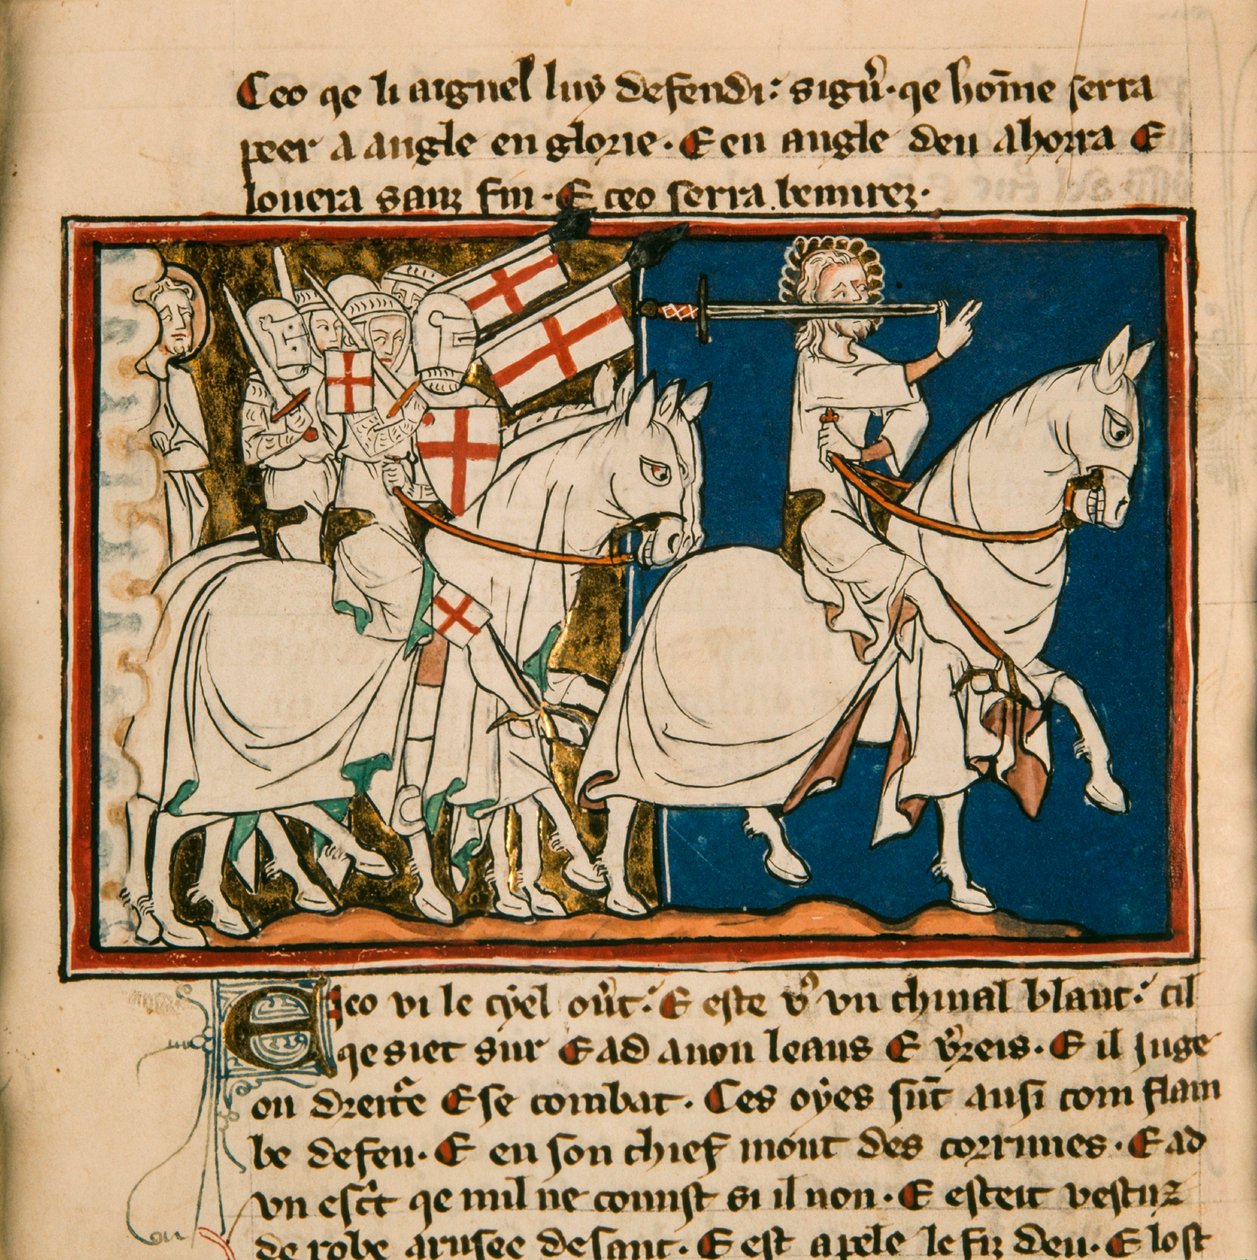 Ceo qe li aignel luy defendi: sigñ·qe hom̄e serra
peer a angle en glorie·E en angle deu ahorra E
louera sanz fin·E ceo serra bemurez·
Eico vi le cyel ou't:E este v' un chiual blanc: cil
qe siet sur E ad a non leaus E v'reis·E il juge
ou dreit'e E se combat·Ces oyes sunt ausi com flam
be de feu·E en son chief mout des corrunes·E ad
vn esc't qe nul ne conust si il non·E esteit vestuz
de robe arusee de sanc·E est apele le fiz deu·E lost